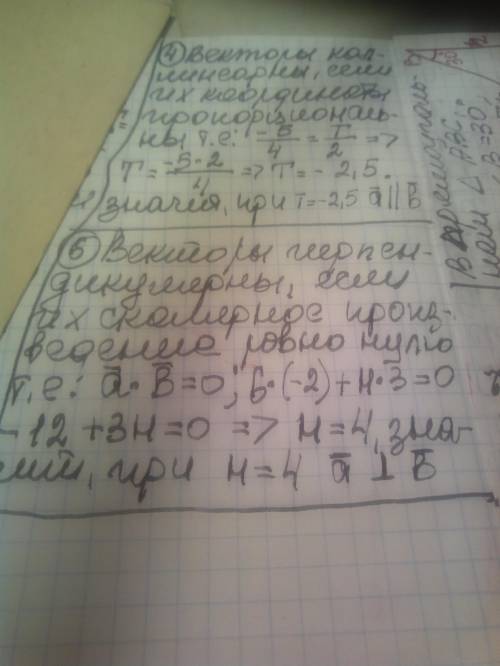 ④ Векторы кол-
линеарны, если
их координаты
пропорциональ-
ны т.е: -5/4 = T/2 =>
T = -5·2/4 => T = - 2,5.
значит, при T=-2,5 ā||b̄
⑤ Векторы перпен-
дикулярны, если
их скалярное произ-
ведение равно нулю
т.е: ā·b̄=0; 6·(-2)+н·3=0
-12+3н=0 => н=4, зна-
чит, при н=4 ā⊥b̄
В прямоуголь-
ном Δ АВС